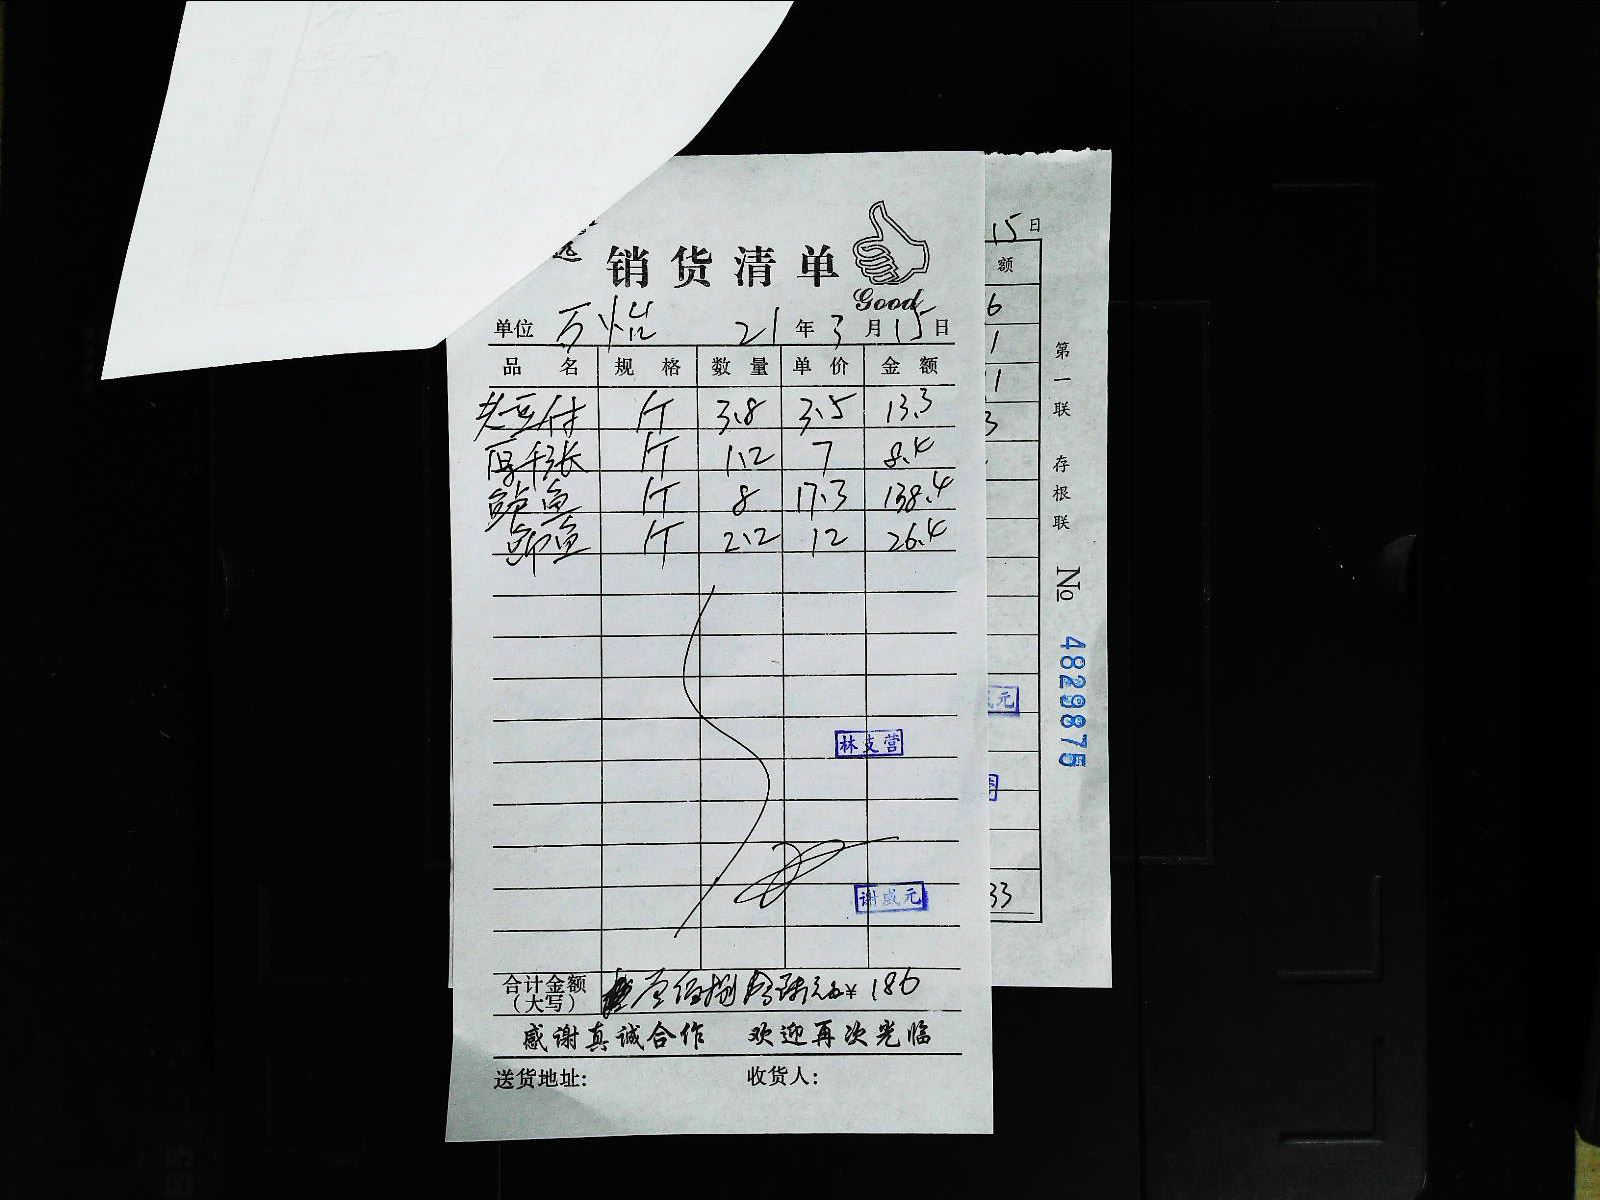 销货清单
Good
单位 万怡 21年3月15日
品名 规格 数量 单价 金额
老豆付 斤 3.8 3.5 13.3
厚千张 斤 1.2 7 8.4
鲈鱼 斤 8 17.3 138.4
鲫鱼 斤 2.2 12 26.4
林支营
谢成元
合计金额(大写) 壹佰捌拾 ¥186
感谢真诚合作 欢迎再次光临
送货地址: 收货人:
15日
额
6
1
1
3
元
33
第一联 存根联 No 4829875